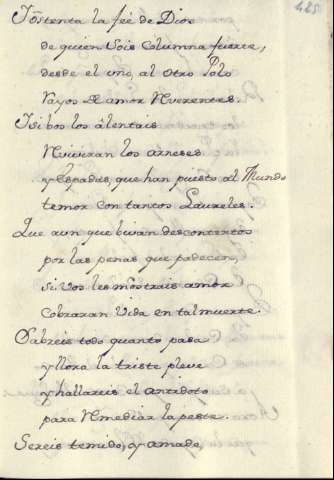 425
Tostenta la feé de Dios
de quien sois columna fuerte,
desde el vno, al otro Polo
rayos de amor Rverentes.
Isi bos los alentais
Rviviran los arneses
y espadas, que han puesto al Mundo
temor con tantos Laureles.
Que aun que bivan descontentos
por las penas que padecen,
si vos les mostrais amor
cobraran vida en tal muerte.
Sabreis todo quanto pasa
y llora la triste pleve
y hallareis el antidoto
para Rmediar la peste.
Sereis temido, y amado,